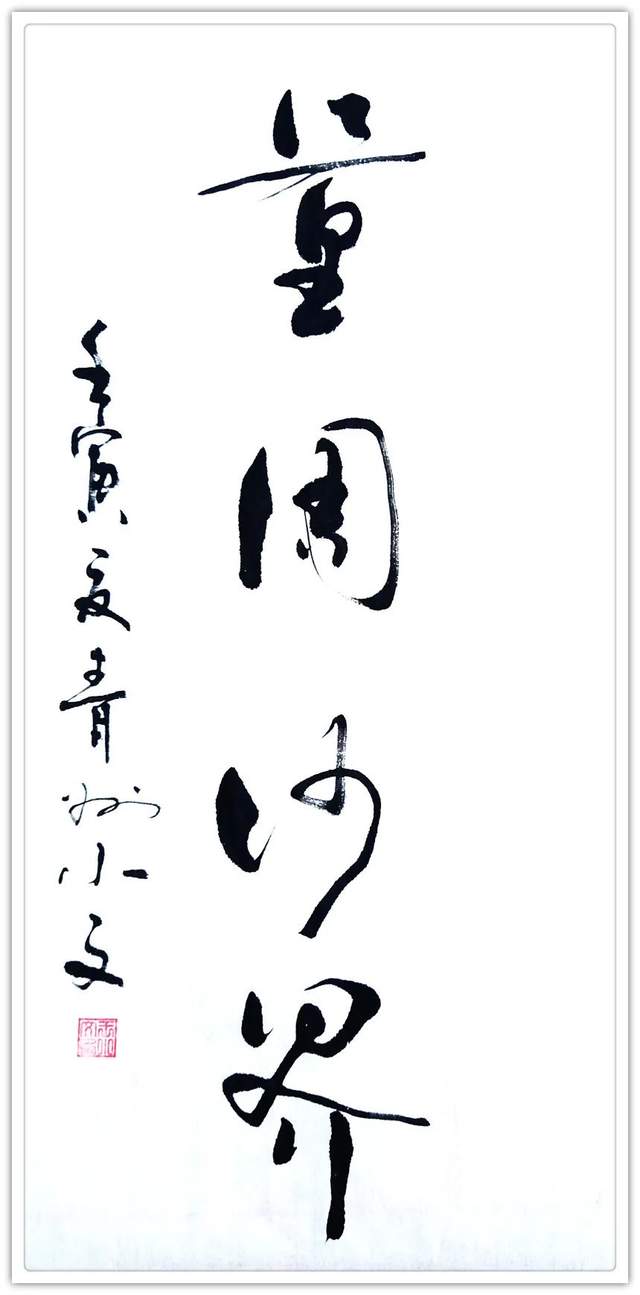 量周沙界
壬寅夏青州小文